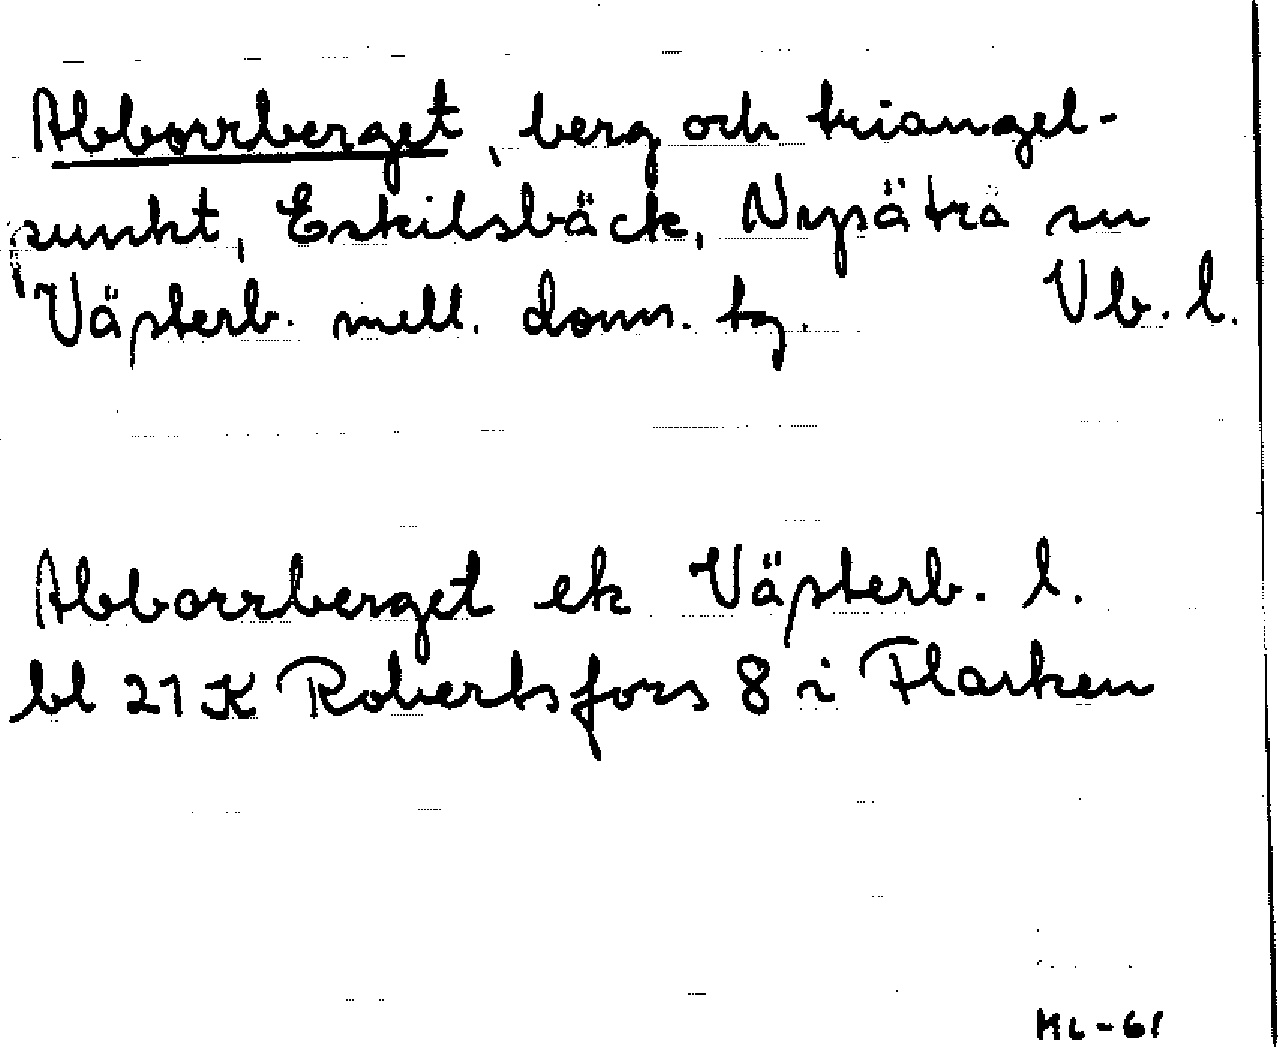 Abborrberget, berg och triangel-
punkt, Eskilsbäck, Nysätra sn
Västerb. mell. doms. tg. Vb. l.
Abborrberget ek Västerb. l.
bl 21 K Robertsfors 8 i Flarken
KL-61